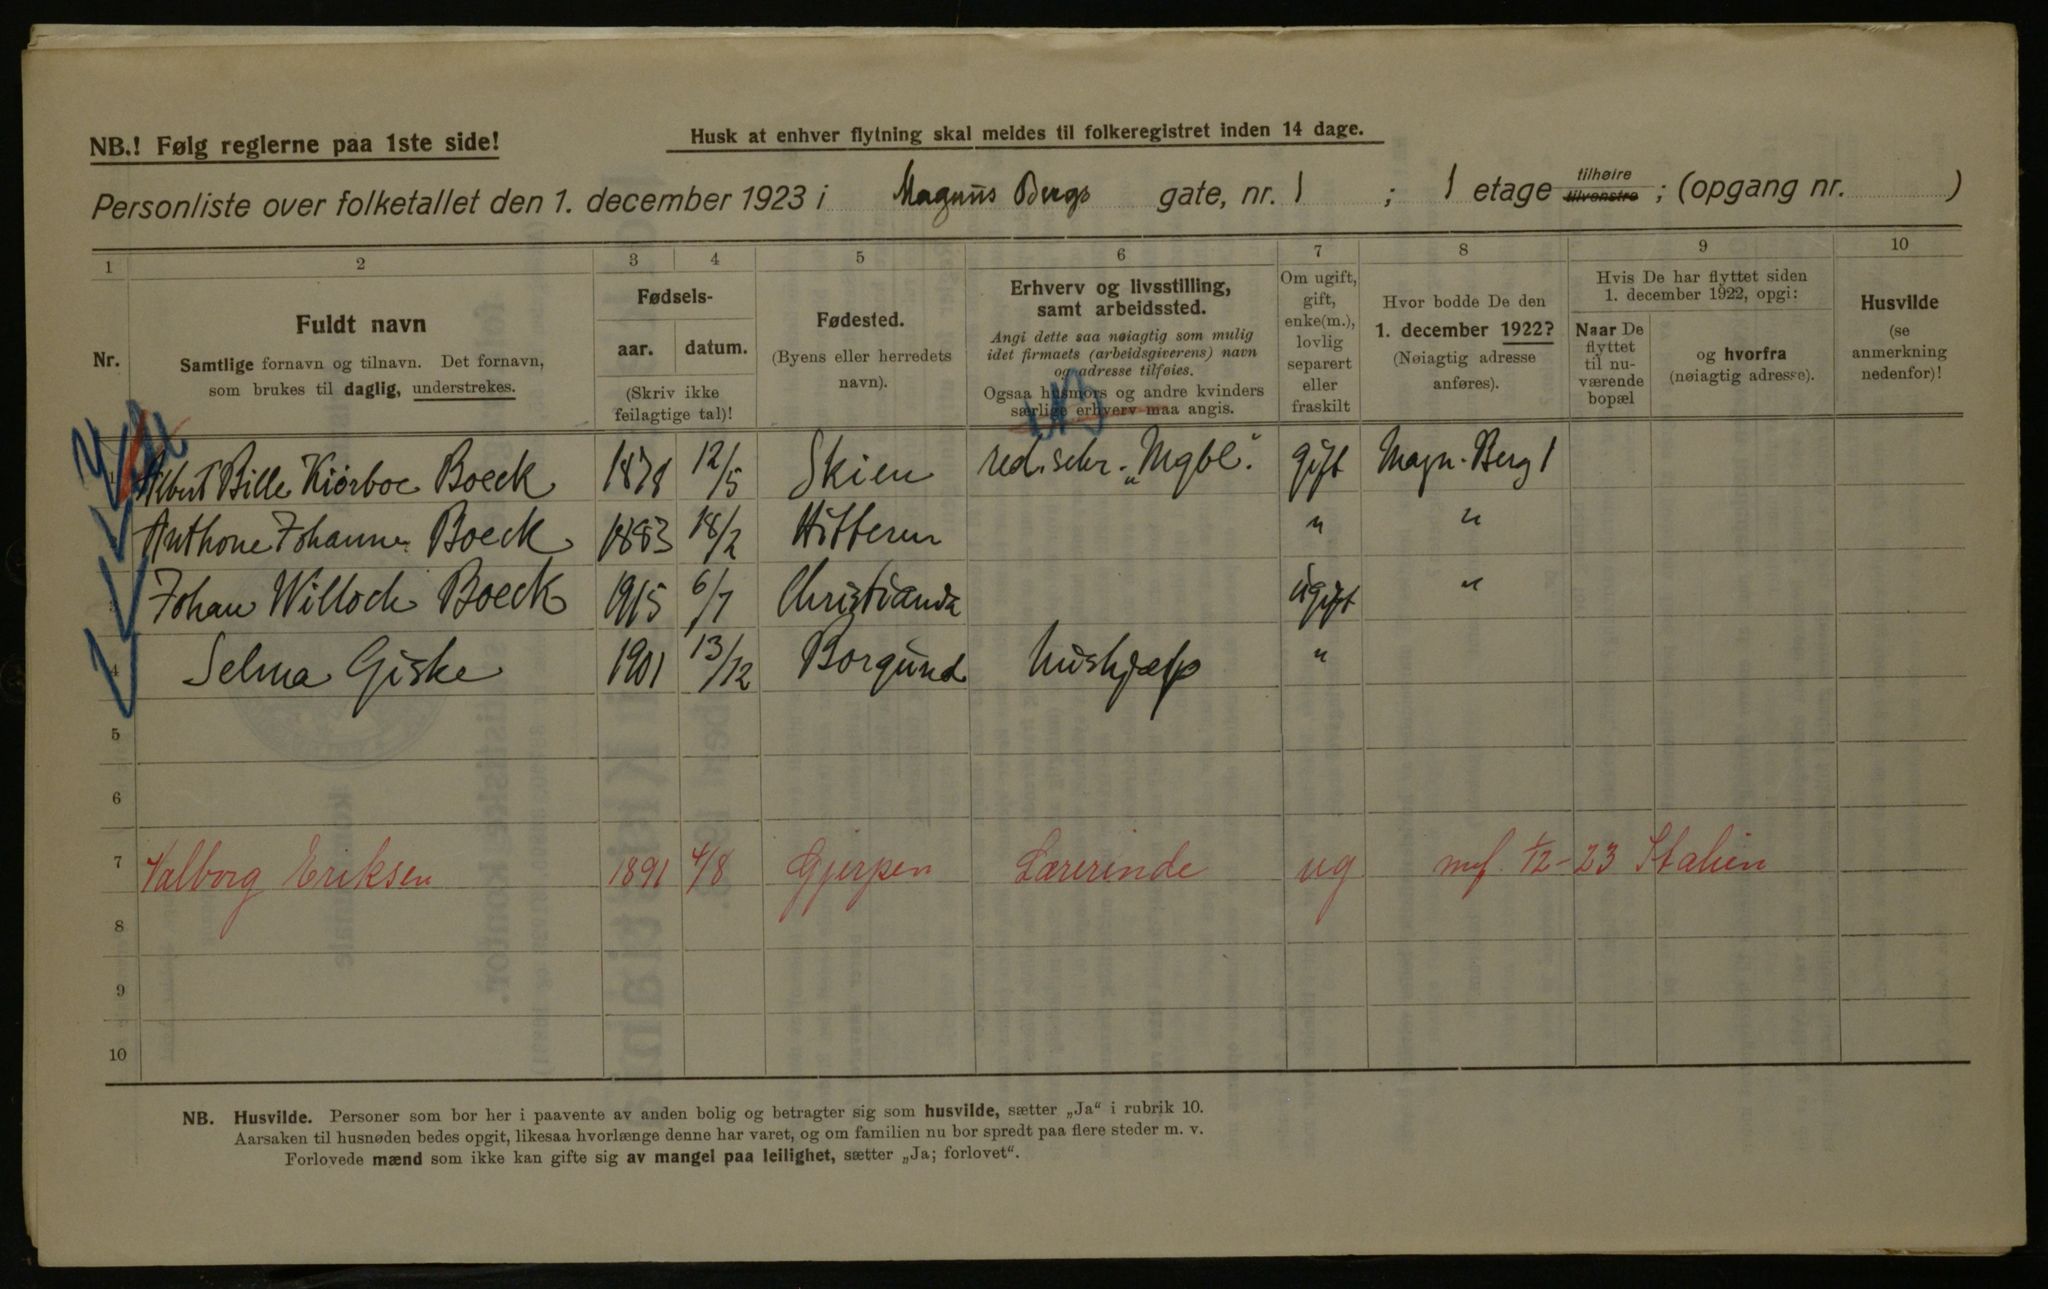 NB.! Følg reglerne paa 1ste side!
Husk at enhver flytning skal meldes til folkeregistret inden 14 dage.
Personliste over folketallet den 1. december 1923 i Magnus Bergs gate, nr. 1 ; 1 etage tilhøire tilvenstre ; (opgang nr. )
1 2 3 4 5 6 7 8 9 10
Nr.
Fuldt navn
Samtlige fornavn og tilnavn. Det fornavn,
som brukes til daglig, understrekes.
Fødsels-
aar. datum.
(Skriv ikke
feilagtige tal)!
Fødested.
(Byens eller herredets
navn).
Erhverv og livsstilling,
samt arbeidssted.
Angi dette saa nøiagtig som mulig
idet firmaets (arbeidsgiverens) navn
og adresse tilføies.
Ogsaa husmors og andre kvinders
særlige erhverv maa angis.
Om ugift,
gift,
enke(m.),
lovlig
separert
eller
fraskilt
Hvor bodde De den
1. december 1922?
(Nøiagtig adresse
anføres).
Hvis De har flyttet siden
1. december 1922, opgi:
Naar De
flyttet
til nu-
værende
bopæl
og hvorfra
(nøiagtig adresse).
Husvilde
(se
anmerkning
nedenfor)!
1 Albert Bille Kiørboe Boeck 1878 12/5 Skien red.sekr. „Mgbl." gift Magn. Berg 1
2 Anthone Johanne Boeck 1883 18/2 Hitteren " "
3 Johan Willoch Boeck 1915 6/7 Christiania ugift "
4 Selma Giske 1901 13/12 Borgund Hushjælp "
5
6
7 Valborg Eriksen 1891 4/8 Gjerpen Lærerinde ug mf. 1/12-23 Italien
8
9
10
NB. Husvilde. Personer som bor her i paavente av anden bolig og betragter sig som husvilde, sætter „Ja" i rubrik 10.
Aarsaken til husnøden bedes opgit, likesaa hvorlænge denne har varet, og om familien nu bor spredt paa flere steder m. v.
Forlovede mænd som ikke kan gifte sig av mangel paa leilighet, sætter „Ja; forlovet".